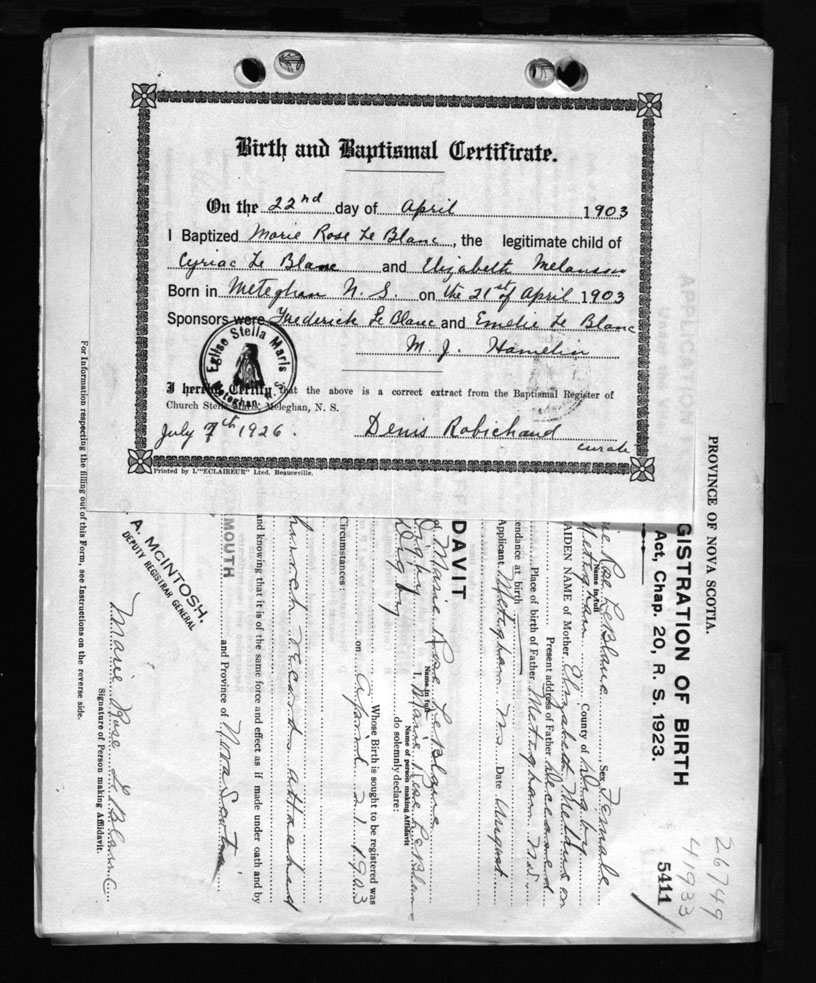 Birth and Baptismal Certificate.
On the 22nd day of April 1903
I Baptized Marie Rose Le Blanc, the legitimate child of
Cyriac Le Blanc and Elizabeth Melanson
Born in Meteghan N. S. on the 21st of April 1903
Sponsors were Frederick Le Blanc and Emelie Le Blanc
M. J. Hamelin
Eglise Stella Maris
Meteghan N. S.
I hereby Certify that the above is a correct extract from the Baptismal Register of
Church Stella Maris, Meteghan, N. S.
July 7th 1926. Denis Robichaud
curate
Printed by L'"ECLAIREUR" Lted. Beauceville.
PROVINCE OF NOVA SCOTIA.
GISTRATION OF BIRTH
Act, Chap. 20, R. S. 1923.
26749
41933
5411
ie Rose LeBlanc Sex Female
Name in full
Meteghan County of Digby
AIDEN NAME of Mother Elizabeth
Present address of Father Deceased
Place of birth of Father Meteghan N.S.
endance at birth
Applicant Meteghan N.S. Date August
DAVIT
Marie Rose LeBlanc
Name in full
Digby I, Marie Rose LeBlanc
Name of person making Affidavit
Digby do solemnly declare:
Whose Birth is sought to be registered was
on April 21 1903
Circumstances:
church records attached
and knowing that it is of the same force and effect as if made under oath and by
MOUTH
and Province of Nova Scotia
A. MCINTOSH,
DEPUTY REGISTRAR GENERAL
Marie Rose LeBlanc
Signature of Person making Affidavit.
For Information respecting the filling out of this Form, see Instructions on the reverse side.